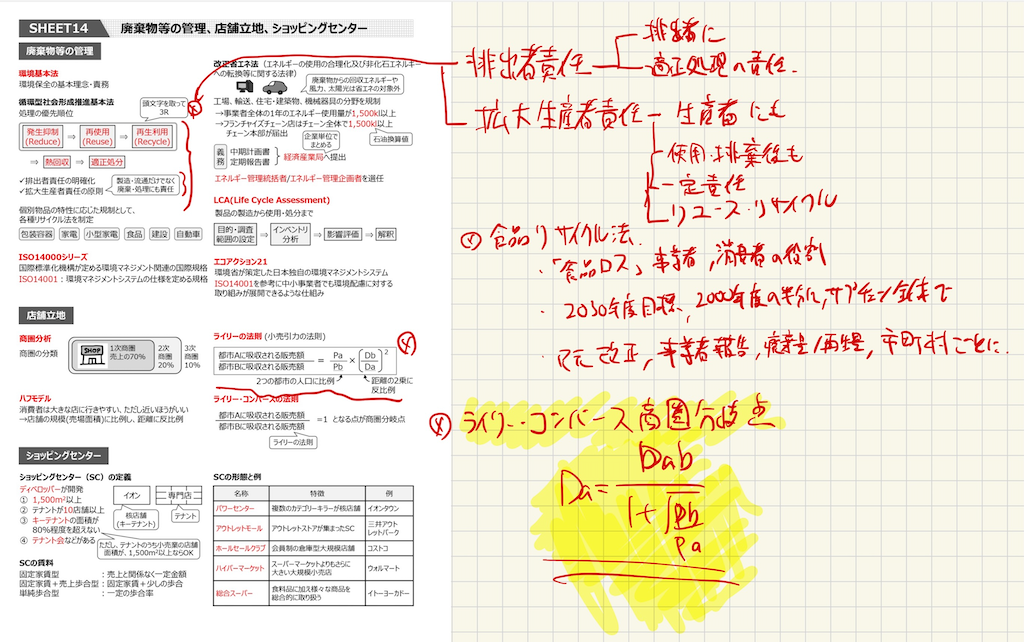 SHEET14
廃棄物等の管理、店舗立地、ショッピングセンター
廃棄物等の管理
環境基本法
環境保全の基本理念・責務
循環型社会形成推進基本法
処理の優先順位
頭文字を取って
3R
発生抑制
(Reduce)
⇒
再使用
(Reuse)
⇒
再生利用
(Recycle)
⇒ 熱回収 ⇒ 適正処分
✓排出者責任の明確化
✓拡大生産者責任の原則
製造・流通だけでなく
廃棄・処理にも責任
個別物品の特性に応じた規制として、
各種リサイクル法を制定
包装容器 家電 小型家電 食品 建設 自動車
ISO14000シリーズ
国際標準化機構が定める環境マネジメント関連の国際規格
ISO14001：環境マネジメントシステムの仕様を定める規格
改正省エネ法（エネルギーの使用の合理化及び非化石エネルギー
への転換等に関する法律）
廃棄物からの回収エネルギーや
風力、太陽光は省エネの対象外
工場、輸送、住宅・建築物、機械器具の分野を規制
→事業者全体の1年のエネルギー使用量が1,500kl以上
→フランチャイズチェーン店はチェーン全体で1,500kl以上
チェーン本部が届出
企業単位で
まとめる
石油換算値
義務
中期計画書
定期報告書
経済産業局へ提出
エネルギー管理統括者/エネルギー管理企画者を選任
LCA(Life Cycle Assessment)
製品の製造から使用・処分まで
目的・調査
範囲の設定
⇒
インベントリ
分析
⇒ 影響評価 ⇒ 解釈
エコアクション21
環境省が策定した日本独自の環境マネジメントシステム
ISO14001を参考に中小事業者でも環境配慮に対する
取り組みが展開できるような仕組み
店舗立地
商圏分析
商圏の分類
SHOP
1次商圏
売上の70%
2次
商圏
20%
3次
商圏
10%
ハフモデル
消費者は大きな店に行きやすい、ただし近いほうがいい
→店舗の規模(売場面積)に比例し、距離に反比例
ライリーの法則 (小売引力の法則)
都市Aに吸収される販売額
都市Bに吸収される販売額
=
Pa
Pb
×
(Db
Da)
2
2つの都市の人口に比例
距離の2乗に
反比例
ライリー・コンバースの法則
都市Aに吸収される販売額
都市Bに吸収される販売額
=1 となる点が商圏分岐点
ライリーの法則
ショッピングセンター
ショッピングセンター（SC）の定義
ディベロッパーが開発
① 1,500m²以上
② テナントが10店舗以上
③ キーテナントの面積が
80%程度を超えない
④ テナント会などがある
イオン
専門店
核店舗
(キーテナント)
テナント
ただし、テナントのうち小売業の店舗
面積が、1,500m²以上ならOK
SCの賃料
固定家賃型 ：売上と関係なく一定金額
固定家賃＋売上歩合型：固定家賃＋少しの歩合
単純歩合型 ：一定の歩合率
SCの形態と例
名称 特徴 例
パワーセンター 複数のカテゴリーキラーが核店舗 イオンタウン
アウトレットモール アウトレットストアが集まったSC 三井アウトレットパーク
ホールセールクラブ 会員制の倉庫型大規模店舗 コストコ
ハイパーマーケット スーパーマーケットよりもさらに大きい大規模小売店 ウォルマート
総合スーパー 食料品に加え様々な商品を総合的に取り扱う イトーヨーカドー
排出者責任
排出者に
適正処理の責任.
拡大生産者責任
生産者にも
使用・排棄後も
一定責任
リユース・リサイクル
食品リサイクル法.
・「食品ロス」事業者,消費者の役割
・2030年度目標, 2000年度の半分に, サプライチェーン全体で
改正, 事業者報告, 廃棄量/再生量, 市町村ごとに.
ライリー・コンバース商圏分岐点
Da=
Dab
1+√
Pb
Pa